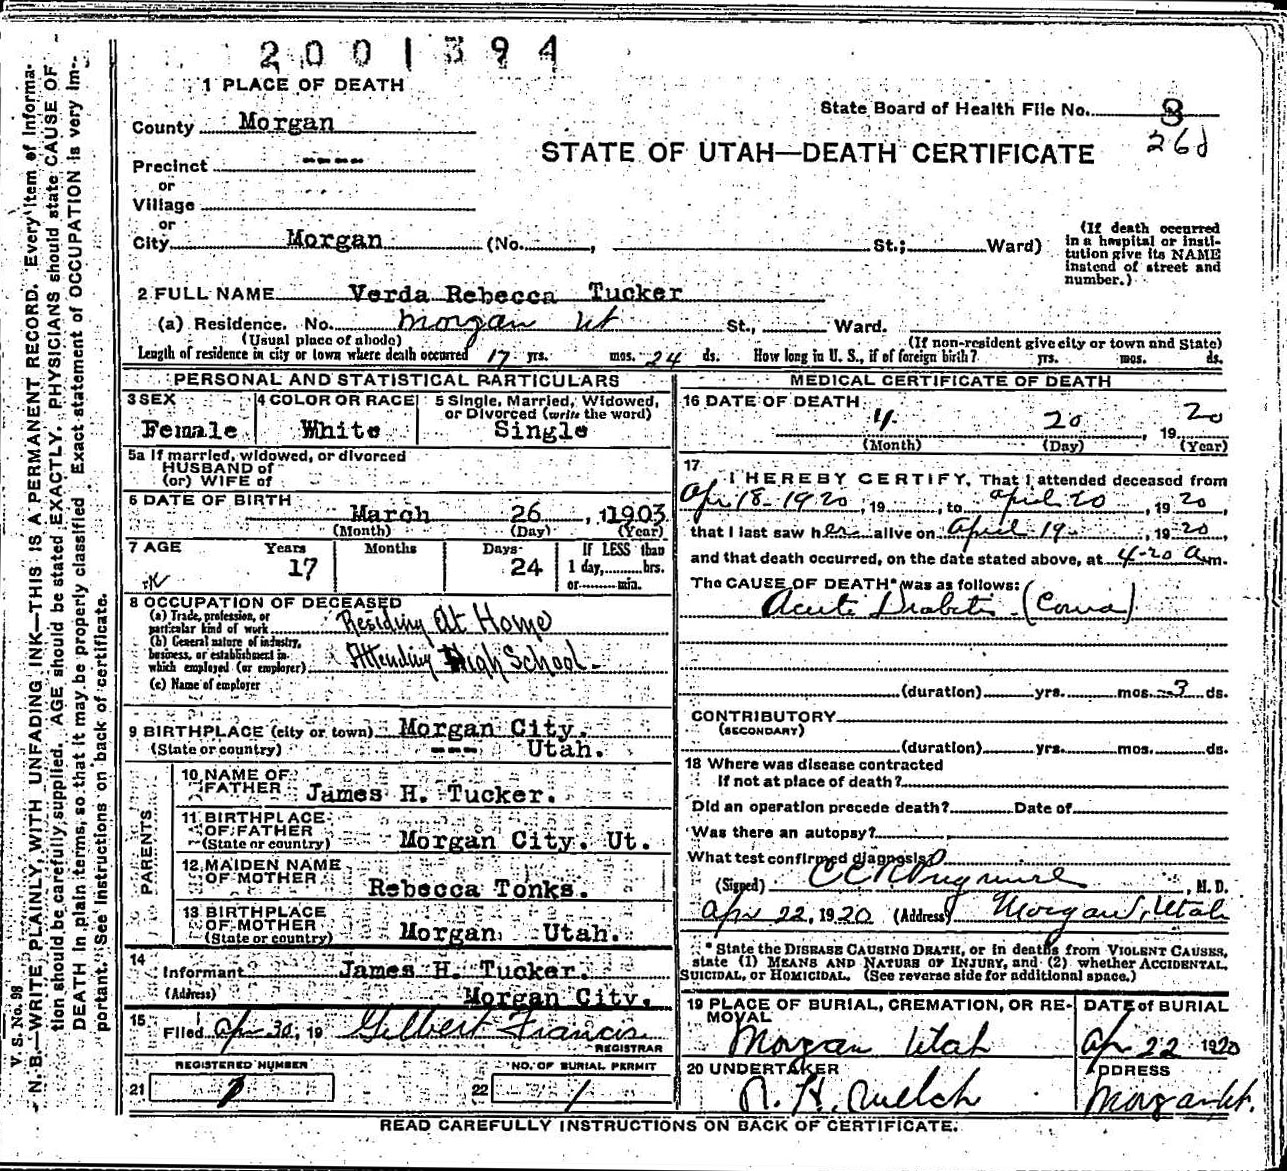 2001394
1 PLACE OF DEATH
State Board of Health File No. 8
County Morgan
26d
STATE OF UTAH—DEATH CERTIFICATE
Precinct ----
or
Village
or
City Morgan (No. , St.; Ward)
(If death occurred in a hospital or institution give its NAME instead of street and number.)
2 FULL NAME Verda Rebecca Tucker
(a) Residence. No. Morgan Ut St., Ward.
(Usual place of abode) (If non-resident give city or town and State)
Length of residence in city or town where death occurred 17 yrs. mos. 24 ds. How long in U. S., if of foreign birth? yrs. mos. ds.
PERSONAL AND STATISTICAL PARTICULARS
3 SEX 4 COLOR OR RACE 5 Single, Married, Widowed, or Divorced (write the word)
Female White Single
5a If married, widowed, or divorced
HUSBAND of
(or) WIFE of
6 DATE OF BIRTH
March 26, 1903
(Month) (Day) (Year)
7 AGE Years Months Days If LESS than
17 24 1 day, hrs.
or min.
8 OCCUPATION OF DECEASED
(a) Trade, profession, or
particular kind of work Residing At Home
(b) General nature of industry,
business, or establishment in
which employed (or employer) Attending High School
(c) Name of employer
9 BIRTHPLACE (city or town) Morgan City.
(State or country) --- Utah.
PARENTS
10 NAME OF
FATHER James H. Tucker.
11 BIRTHPLACE
OF FATHER
(State or country) Morgan City. Ut.
12 MAIDEN NAME
OF MOTHER
Rebecca Tonks.
13 BIRTHPLACE
OF MOTHER
(State or country) Morgan Utah.
14
Informant James H. Tucker.
(Address) Morgan City.
15
Filed Apr 30, 19 Gilbert Francis
REGISTRAR
REGISTERED NUMBER NO. OF BURIAL PERMIT
21 22 1
MEDICAL CERTIFICATE OF DEATH
16 DATE OF DEATH
4 20, 1920
(Month) (Day) (Year)
17
I HEREBY CERTIFY, That I attended deceased from
Apr 18-1920, 19 , to April 20, 1920,
that I last saw her alive on April 19, 1920,
and that death occurred, on the date stated above, at 4-20 Am.
The CAUSE OF DEATH* was as follows:
Acute Diabetis (Coma)
(duration) yrs. mos. 3 ds.
CONTRIBUTORY
(SECONDARY)
(duration) yrs. mos. ds.
18 Where was disease contracted
If not at place of death?
Did an operation precede death? Date of
Was there an autopsy?
What test confirmed diagnosis?
(Signed) , M. D.
Apr 22, 1920 (Address) Morgan, Utah
* State the DISEASE CAUSING DEATH, or in deaths from VIOLENT CAUSES,
state (1) MEANS AND NATURE OF INJURY, and (2) whether ACCIDENTAL,
SUICIDAL, or HOMICIDAL. (See reverse side for additional space.)
19 PLACE OF BURIAL, CREMATION, OR RE-
MOVAL
Morgan Utah
DATE of BURIAL
Apr 22 1920
20 UNDERTAKER
ADDRESS
Morgan Ut.
READ CAREFULLY INSTRUCTIONS ON BACK OF CERTIFICATE.
V. S. No. 98
N. B.—WRITE PLAINLY, WITH UNFADING INK—THIS IS A PERMANENT RECORD. Every item of informa-
tion should be carefully supplied. AGE should be stated EXACTLY. PHYSICIANS should state CAUSE OF
DEATH in plain terms, so that it may be properly classified. Exact statement of OCCUPATION is very im-
portant. See instructions on back of certificate.